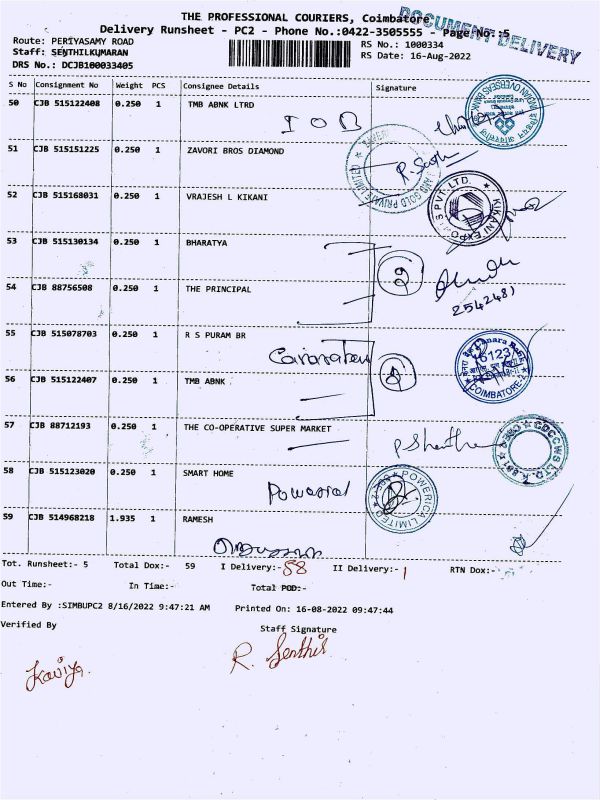 THE PROFESSIONAL COURIERS, Coimbatore
DOCUMENT DELIVERY
Delivery Runsheet - PC2 - Phone No.:0422-3505555 - Page No.:5
Route: PERIYASAMY ROAD
RS No.: 1000334
Staff: SENTHILKUMARAN
RS Date: 16-Aug-2022
DRS No.: DCJB100033405
S No Consignment No Weight PCS Consignee Details Signature
50 CJB 515122408 0.250 1 TMB ABNK LTRD
I O B
INDIAN OVERSEAS BANK
51 CJB 515151225 0.250 1 ZAVORI BROS DIAMOND
GOLD PRIVATE LIMITED
52 CJB 515168031 0.250 1 VRAJESH L KIKANI
KIKANI EXPORTS PVT. LTD.
53 CJB 515130134 0.250 1 BHARATYA
54 CJB 88756508 0.250 1 THE PRINCIPAL
55 CJB 515078703 0.250 1 R S PURAM BR
Canara Bank
16123
COIMBATORE-2
56 CJB 515122407 0.250 1 TMB ABNK
57 CJB 88712193 0.250 1 THE CO-OPERATIVE SUPER MARKET
58 CJB 515123020 0.250 1 SMART HOME
POWERICA LIMITED
59 CJB 514968218 1.935 1 RAMESH
Tot. Runsheet:- 5 Total Dox:- 59 I Delivery:- 58 II Delivery:- 1 RTN Dox:-
Out Time:- In Time:- Total POD:-
Entered By :SIMBUPC2 8/16/2022 9:47:21 AM Printed On: 16-08-2022 09:47:44
Verified By Staff Signature
Kaviya.
R. Senthil